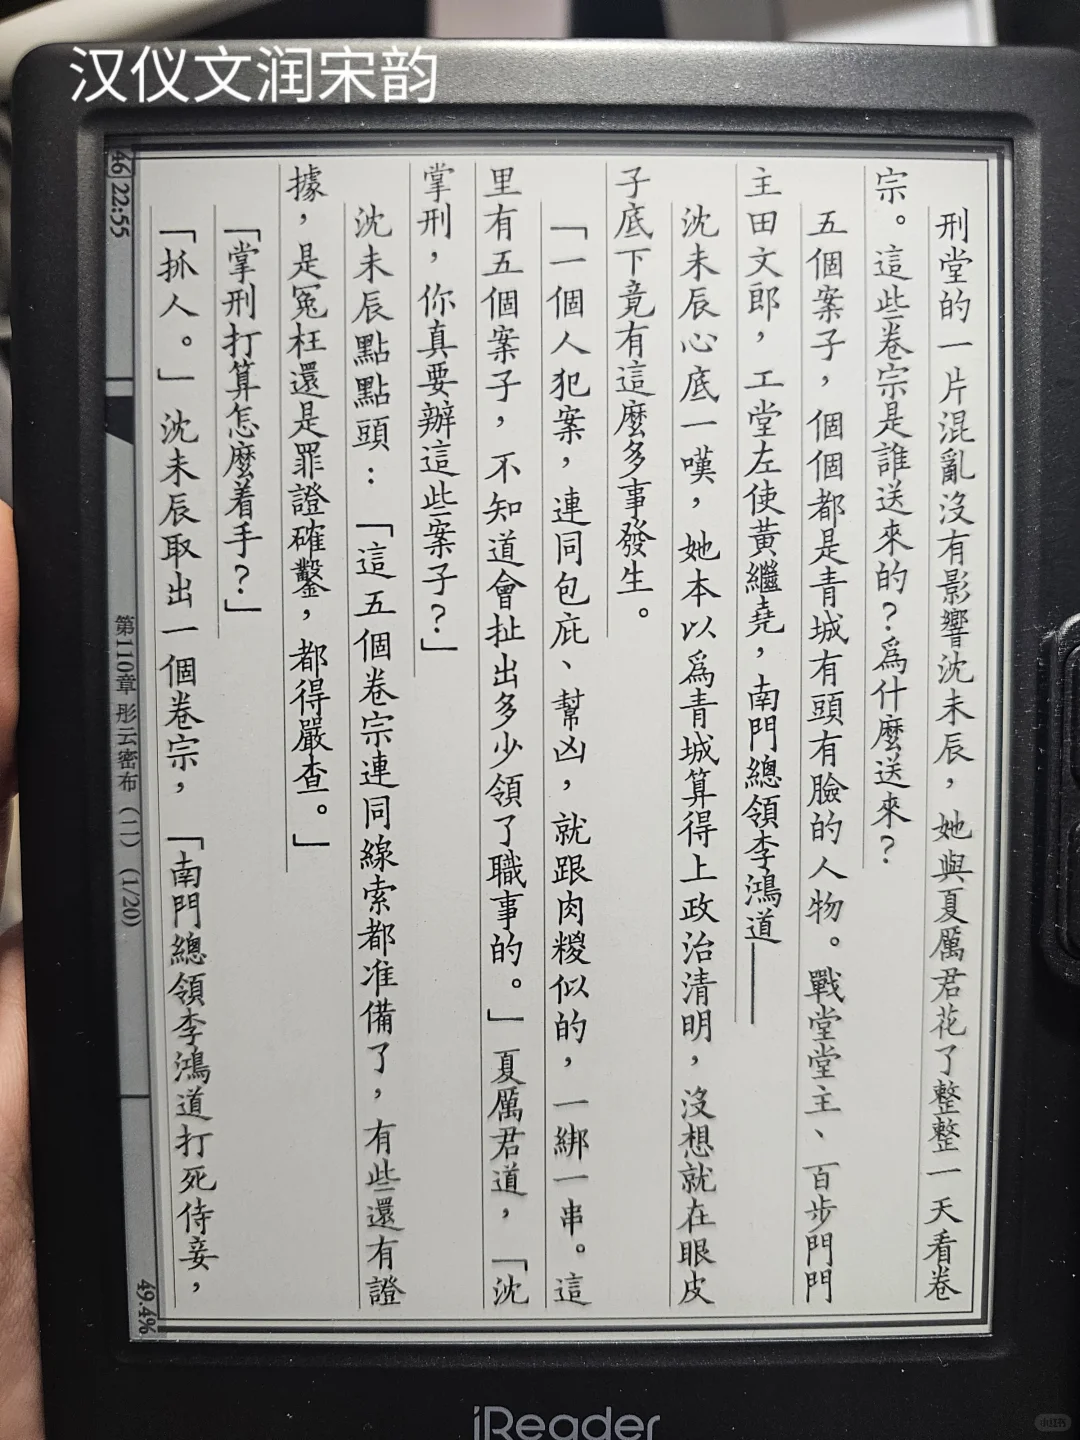 汉仪文润宋韵
刑堂的一片混亂沒有影響沈未辰，她與夏厲君花了整整一天看卷
宗。這些卷宗是誰送來的？爲什麼送來？
五個案子，個個都是青城有頭有臉的人物。戰堂堂主、百步門門
主田文郎，工堂左使黃繼堯，南門總領李鴻道——
沈未辰心底一嘆，她本以爲青城算得上政治清明，沒想就在眼皮
子底下竟有這麼多事發生。
「一個人犯案，連同包庇、幫凶，就跟肉糉似的，一綁一串。這
里有五個案子，不知道會扯出多少領了職事的。」夏厲君道，「沈
掌刑，你真要辦這些案子？」
沈未辰點點頭：「這五個卷宗連同線索都准備了，有些還有證
據，是冤枉還是罪證確鑿，都得嚴查。」
「掌刑打算怎麼着手？」
「抓人。」沈未辰取出一個卷宗，「南門總領李鴻道打死侍妾，
46 22:55
第110章 彤云密布（二）（1/20）
49.4%
iReader
小红书